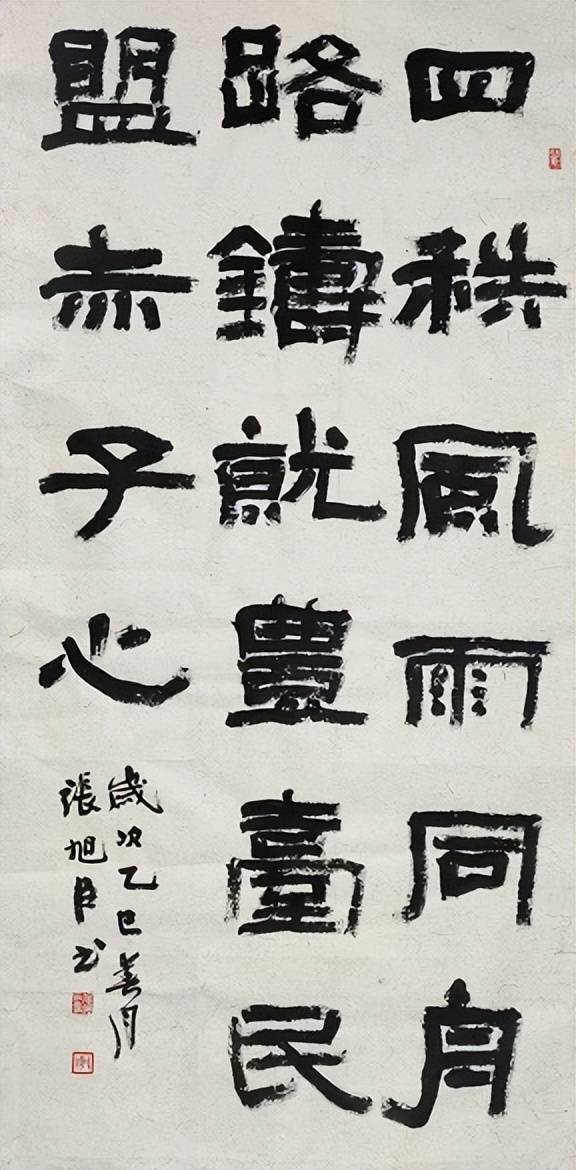 四秩風雨同舟
路鑄就豊臺民
盟赤子心
歲次乙巳春月
張旭臣书